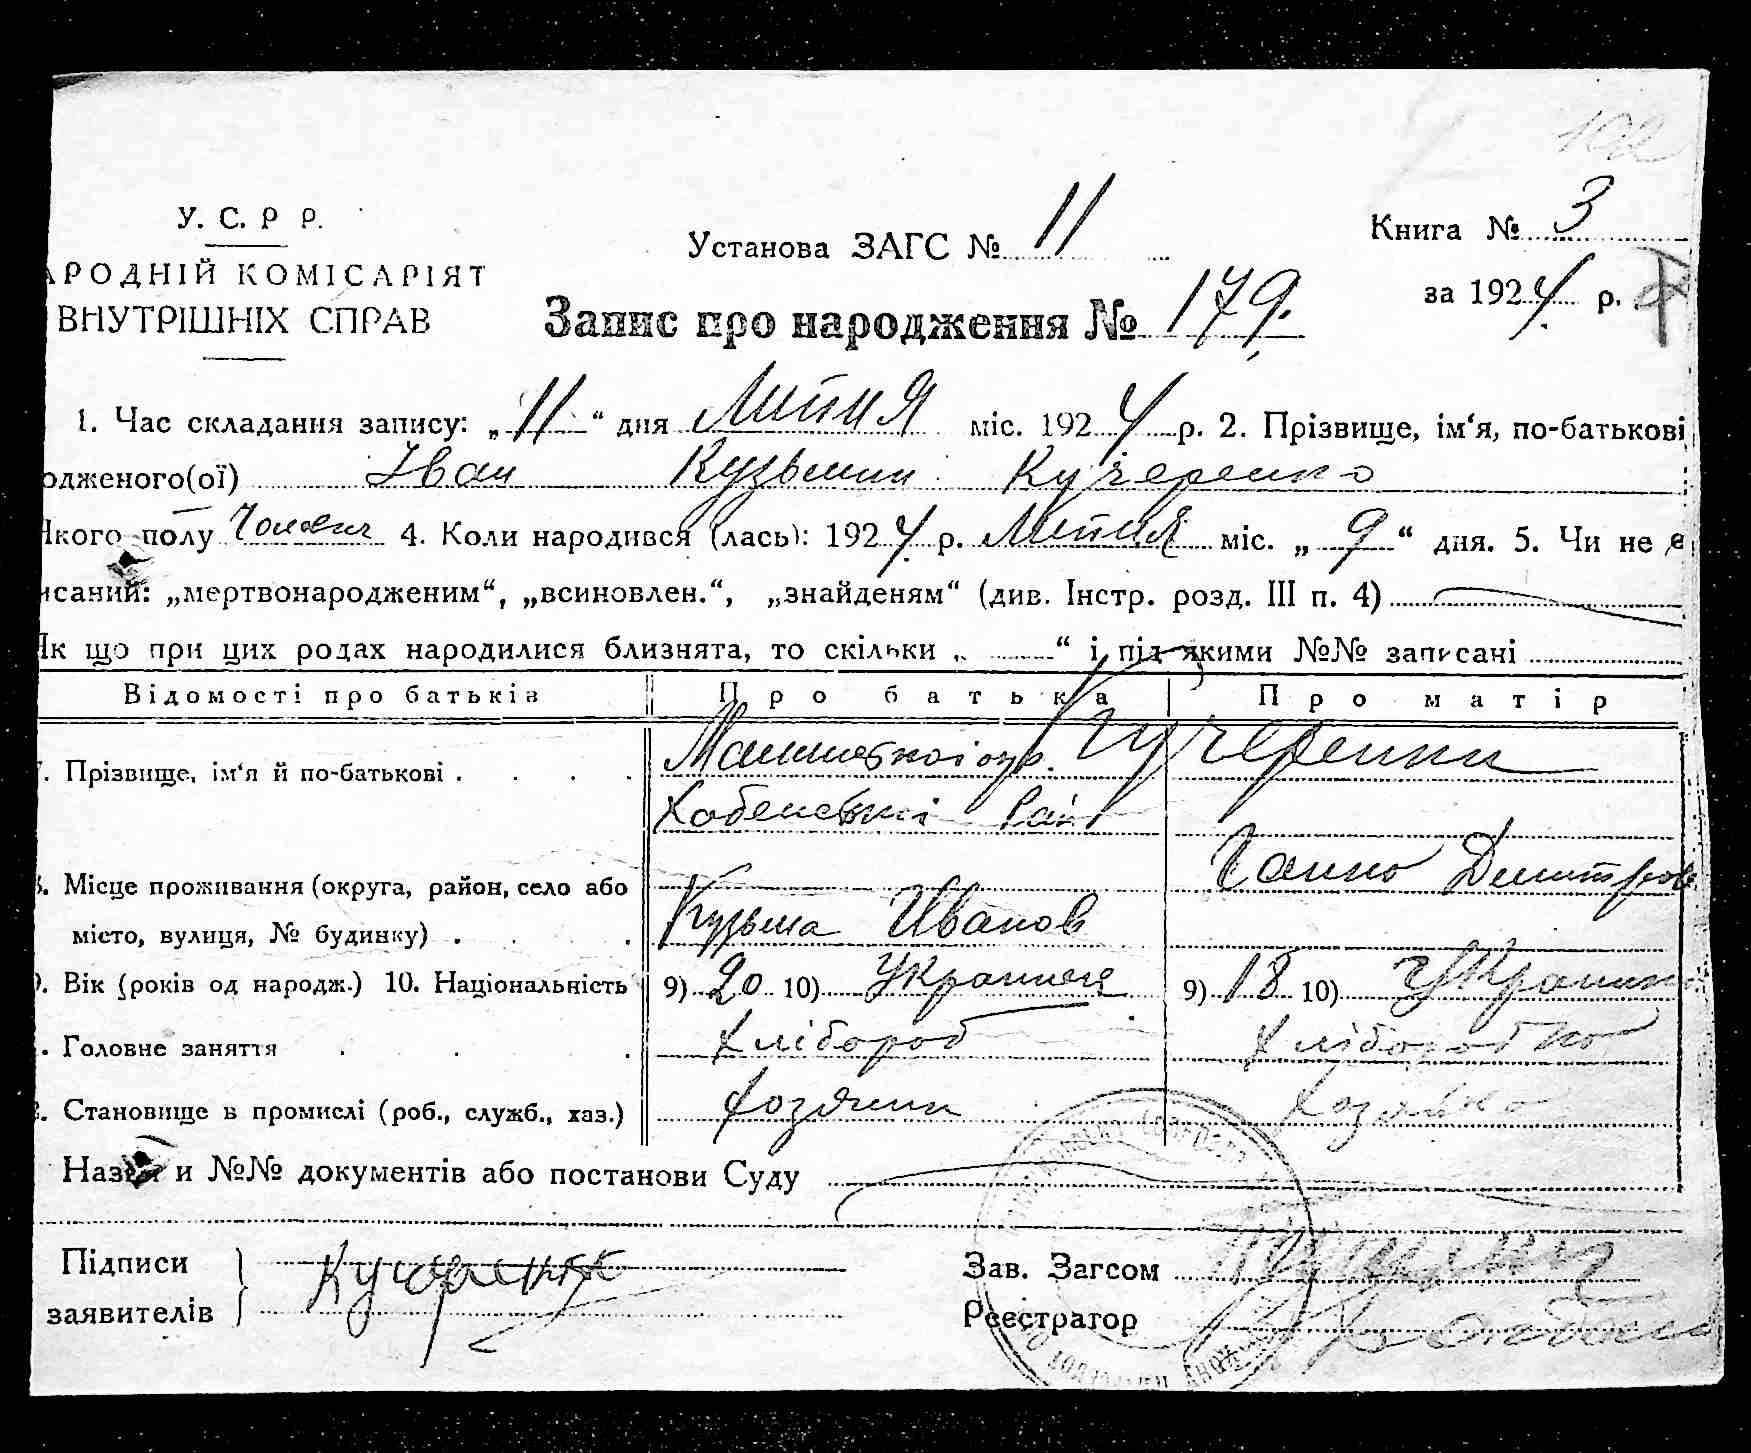 102
У. С. Р Р.
Установа ЗАГС № 11
Книга № 3
АРОДНІЙ КОМІСАРІЯТ
ВНУТРІШНІХ СПРАВ
за 1924 р.
Запис про народження № 179.
1. Час складання запису: „11“ дня Липня міс. 1924 р. 2. Прізвище, ім‘я, по-батькові
одженого(ої) Іван Кузьмин Кучеренко
Якого полу Чоловіч 4. Коли народився (лась): 1924 р. Липня міс. „9“ дня. 5. Чи не є
исаний: „мертвонародженим“, „всиновлен.“, „знайденям“ (див. Інстр. розд. III п. 4)
Як що при цих родах народилися близнята, то скільки „ “ і під якими №№ записані
Відомості про батьків Про батька Про матір
7. Прізвище, ім‘я й по-батькові . . . . Кучеренки
Хабенські Рай
Ганна Дмитров
8. Місце проживання (округа, район, село або
Кузьма Иванов
місто, вулиця, № будинку) . . .
9. Вік (років од народж.) 10. Національність 9) 20 10) Українец 9) 18 10) Українк
. Головне заняття . . . Хлібороб Хлібороб ка
2. Становище в промислі (роб., служб., хаз.) Хозяин Хозяйка
Назва и №№ документів або постанови Суду
Підписи
заявителів
Кучеренк
Зав. Загсом
Реєстратор